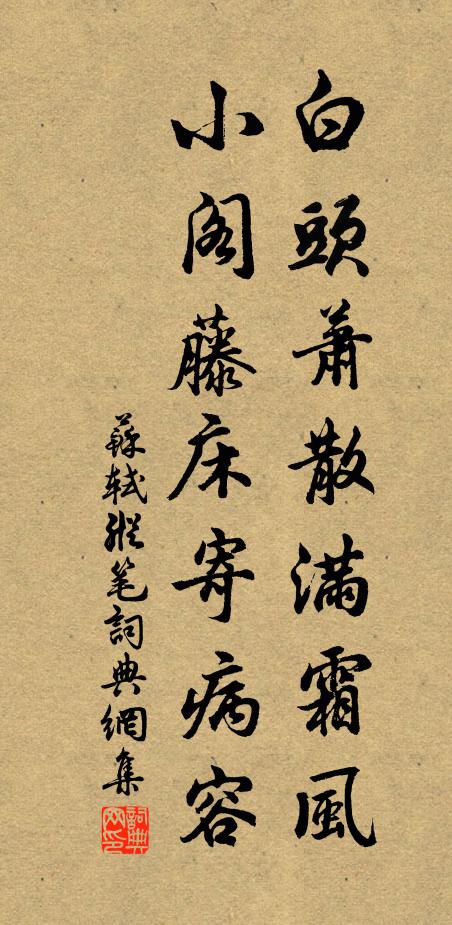 白頭蕭散滿霜風
小阁藤床寄病容
蘇軾縱笔詞典網集
詞典网印